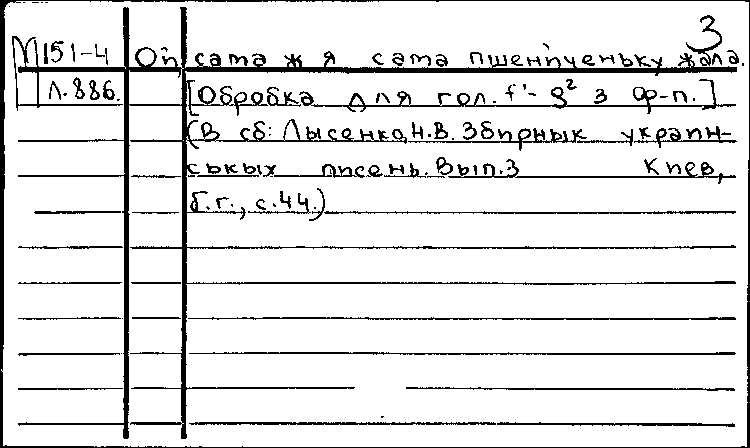 3
М151-4 Ой, сама ж я сама пшениченьку жала.
Л.886. [Обробка для гол. f¹- g² з ф-п.]
(В сб: Лысенко, Н.В. Збирнык украин-
ськых писень. Вып.3 Киев,
б.г., с.44.)